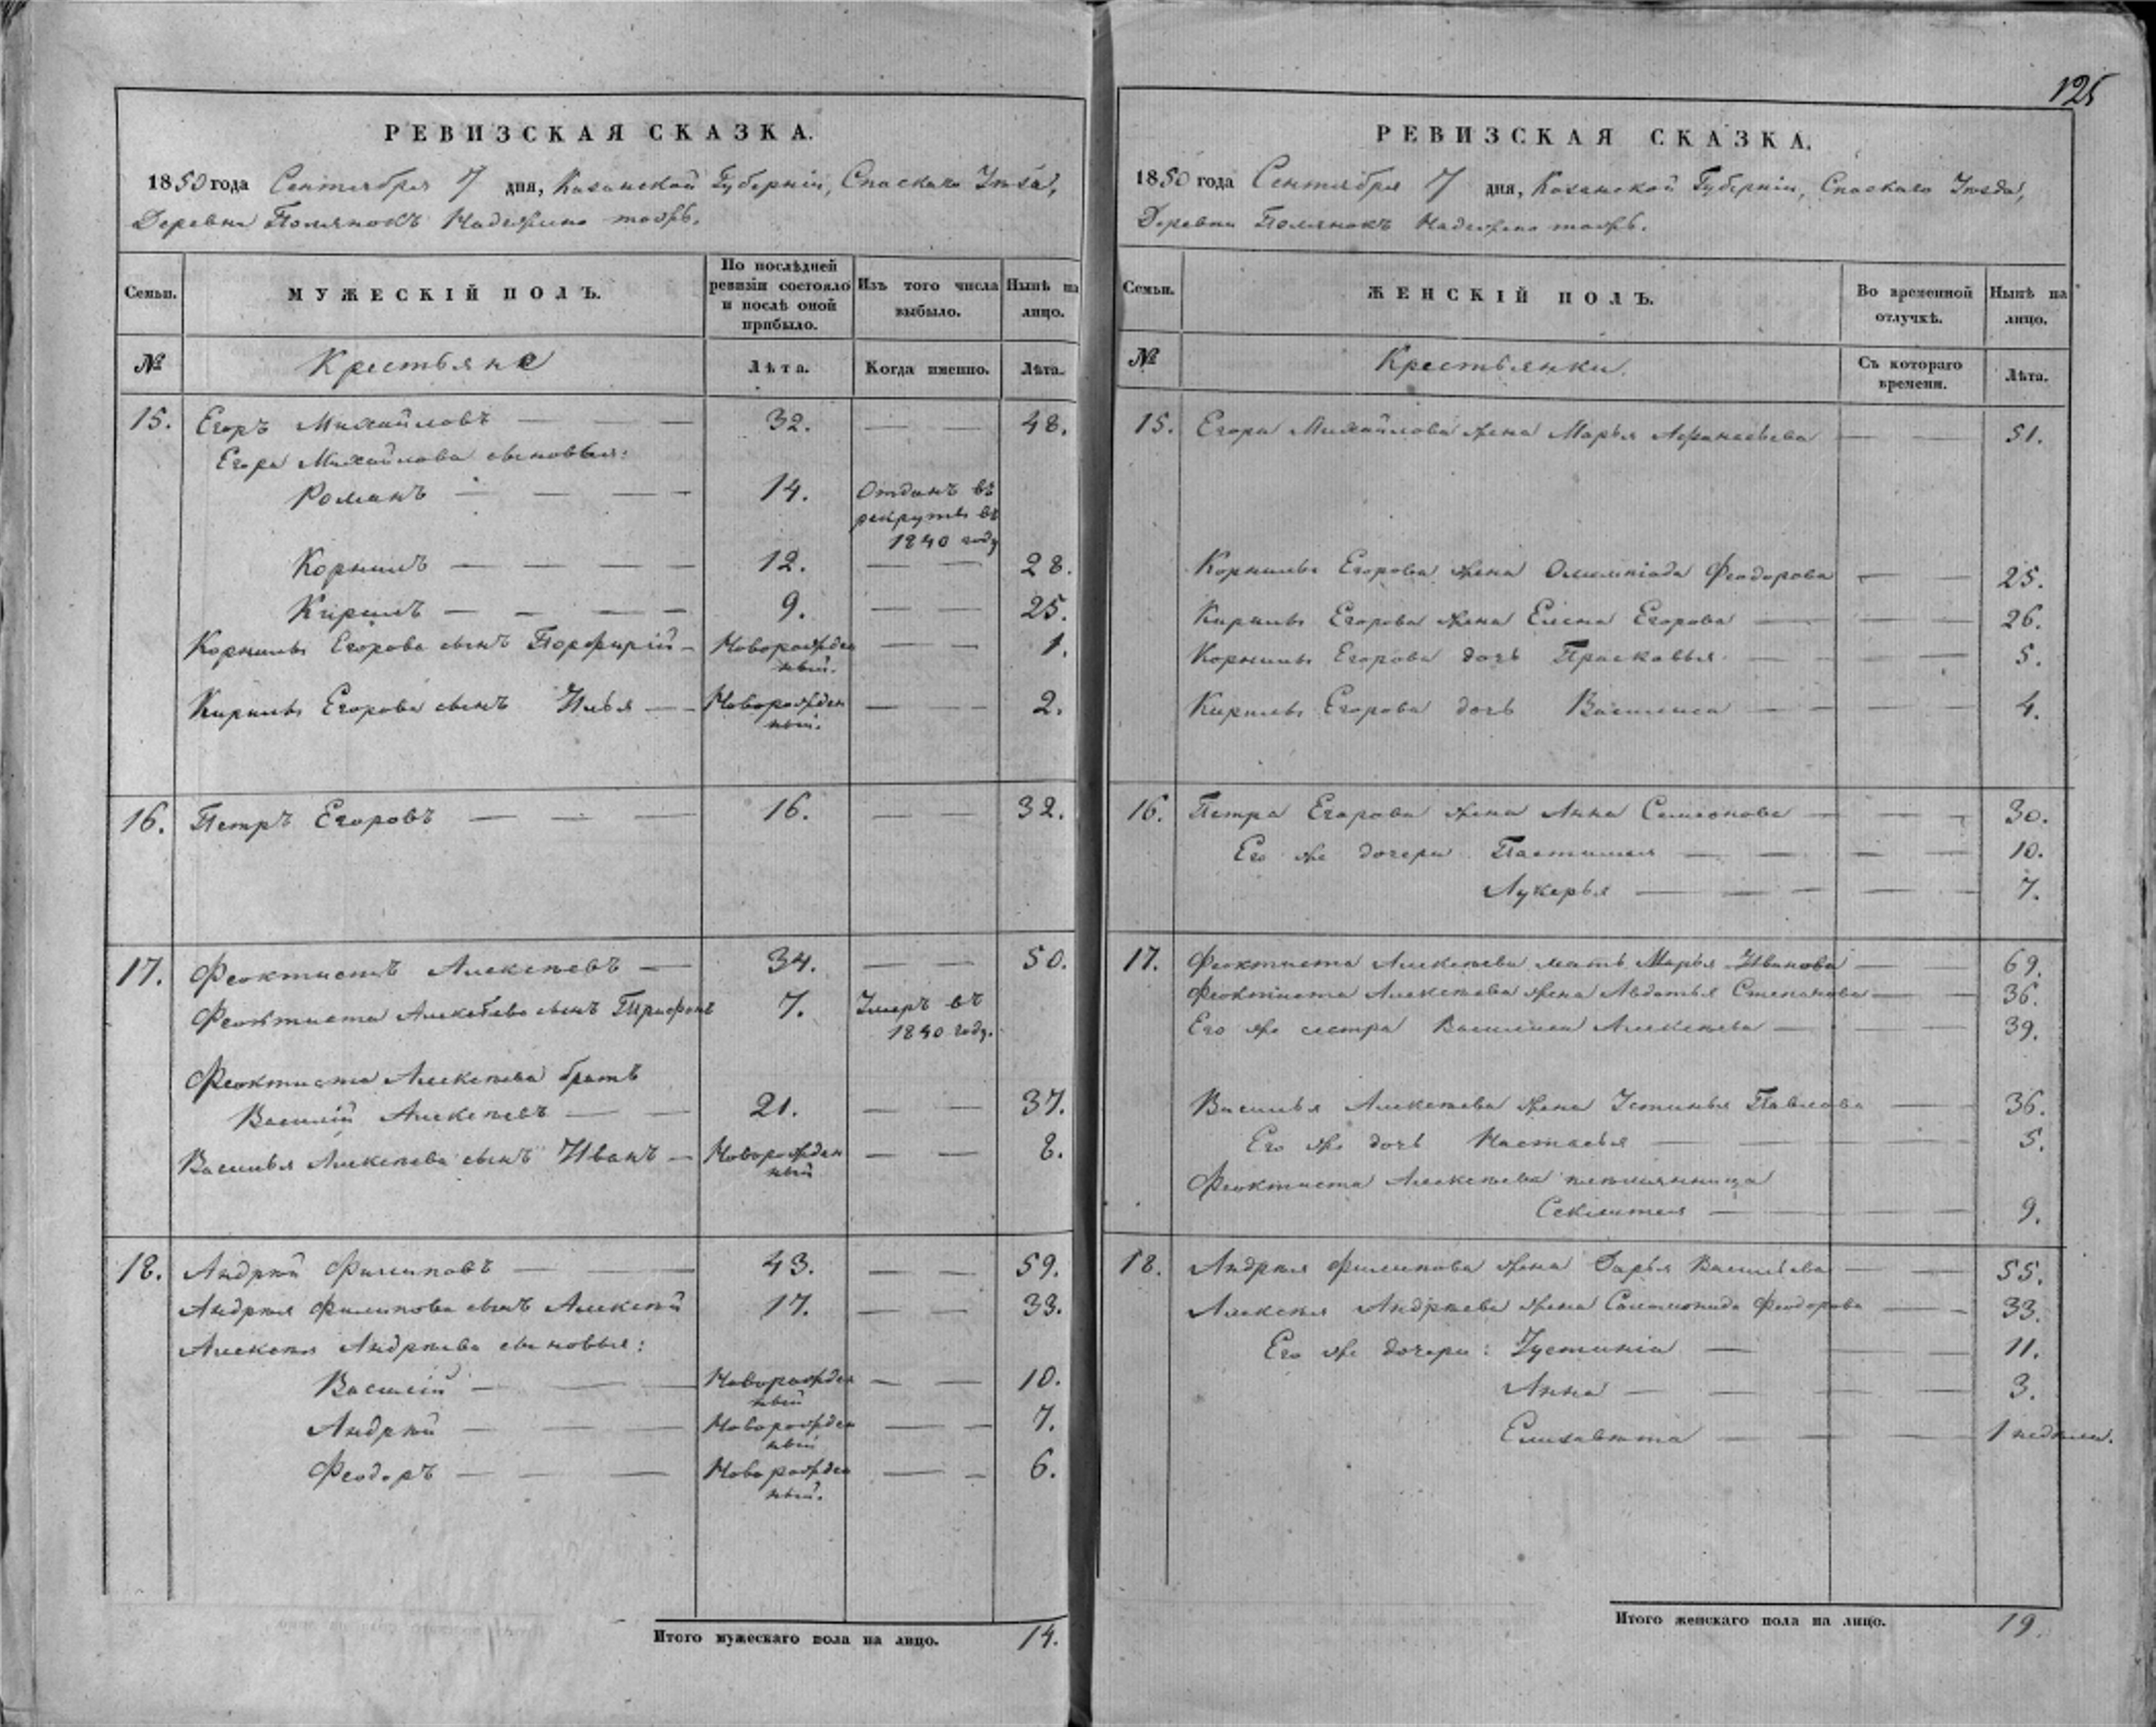 РЕВИЗСКАЯ СКАЗКА.
1850 года Сентября 7 дня, Казанской Губерніи, Спаскаго Уѣзда,
Деревни Полянокъ Надежино тожъ.
Семьи.
МУЖЕСКІЙ ПОЛЪ.
По послѣдней ревизіи состояло и послѣ оной прибыло.
Изъ того числа выбыло.
Нынѣ на лицо.
№
Крестьяне
Лѣта.
Когда именно.
Лѣта.
15. Егоръ Михайловъ — — 32. — — 48.
Егора Михайлова сыновья:
Романъ — — — — 14. Отданъ въ
рекруты въ
1840 году
Корнилъ — — — — 12. — — 28.
Кирилъ — — — — 9. — — 25.
Корнилы Егорова сынъ Порфирій — Новорожден — — 1.
ный.
Кирилы Егорова сынъ Илья — — Новорожден — — 2.
ный.
16. Петръ Егоровъ — — — 16. — — 32.
17. Феоктистъ Алексѣевъ — 34. — — 50.
Феоктиста Алексѣева сынъ Трифонъ 7. Умеръ въ
1840 году.
Феоктиста Алексѣева братъ
Василій Алексѣевъ — — 21. — — 37.
Василья Алексѣева сынъ Иванъ — Новорожден — — 8.
ный
18. Андрей Филиповъ — — 43. — — 59.
Андрея Филипова сынъ Алексѣй 17. — — 33.
Алексѣя Андрѣева сыновья:
Василій — — — Новорожден — — 10.
ный
Андрей — — — Новорожден — — 7.
ный
Феодоръ — — — Новорожден — — 6.
ный.
Итого мужескаго пола на лицо. 14.
125
РЕВИЗСКАЯ СКАЗКА.
1850 года Сентября 7 дня, Казанской Губерніи, Спаскаго Уѣзда,
Деревни Полянокъ Надежино тожъ.
Семьи.
ЖЕНСКІЙ ПОЛЪ.
Во временной отлучкѣ.
Нынѣ на лицо.
№
Крестьянки.
Съ котораго времени.
Лѣта.
15. Егора Михайлова жена Марья Афанасьева — — 51.
Корнилы Егорова жена Олимпіада Феодорова — — 25.
Кирилы Егорова жена Елена Егорова — — — 26.
Корнилы Егорова дочь Прасковья — — — — 5.
Кирилы Егорова дочь Василиса — — — — 4.
16. Петра Егорова жена Анна Семионова — — — 30.
Его же дочери Пастимея — — — — 10.
Лукерья — — — — — 7.
17. Феоктиста Алексѣева мать Марья Иванова — — 69.
Феоктиста Алексѣева жена Авдотья Степанова — — 36.
Его же сестра Василиса Алексѣева — — — 39.
Василья Алексѣева жена Устинья Павлова — — 36.
Его же дочь Настасья — — — — 5.
Феоктиста Алексѣева племянница
Секлитея — — — — 9.
18. Андрея Филипова жена Дарья Васильева — — 55.
Алексѣя Андрѣева жена Саламонида Феодорова — — 33.
Его же дочери: Іустинія — — — 11.
Анна — — — — — 3.
Елизавѣта — — — — 1 недѣли.
Итого женскаго пола на лицо. 19.